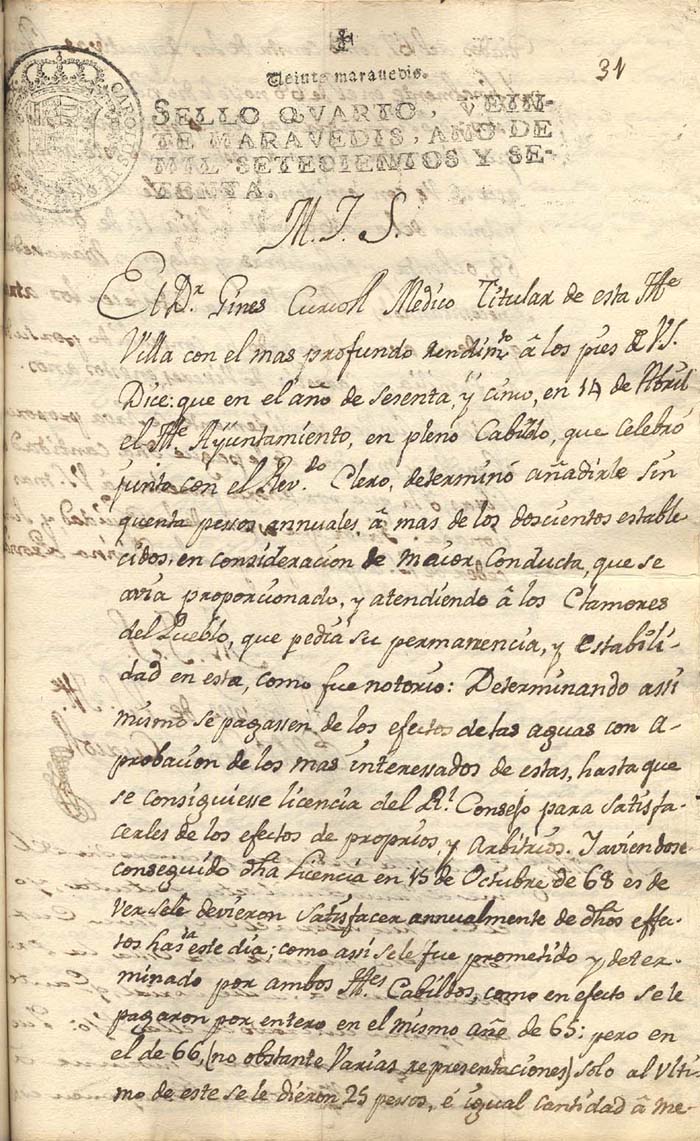 31
Veinte maravedis.
SELLO QVARTO, VEIN-
TE MARAVEDIS, AÑO DE
MIL SETECIENTOS Y SE-
TENTA.
CAROLVS III
M. I. S.
El D.r Gines Curioll Medico Titular de esta Ill.e
Villa con el mas profundo rendim.to â los pies de VS.
Dice: que en el año de sesenta, y cinco, en 14 de Abril
el Ill.e Ayuntamiento, en pleno Cabildo, que celebrò
junto con el Rev.do Clero, determinò añadirle sin
quenta pesos annuales â mas de los doscuentos estable
cidos, en consideracion de maior Conducta, que se
avia proporcionado, y atendiendo â los Clamores
del Pueblo, que pedia su permanencia, y estabili-
dad en esta, como fue notorio: Determinando assi
mismo se pagassen de los efectos de las aguas con a-
probacion de los mas interessados de estas, hasta que
se consiguiesse licencia del R.l Consejo para satisfa-
cerles de los efectos de proprios, y Arbitrios. Y aviendose
conseguido dha Licencia en 15 de Octubre de 68 es de
ver se le devieron satisfacer annualmente de dhos effec-
tos has.ta este dia; como assi se le fue prometido y deter-
minado por ambos Ill.es Cabildos, como en efecto se le
pagaron por entero en el mismo año de 65; pero en
el de 66, (no obstante varias representaciones) solo al ulti-
mo de este se le dieron 25 pesos, è igual cantidad â me-